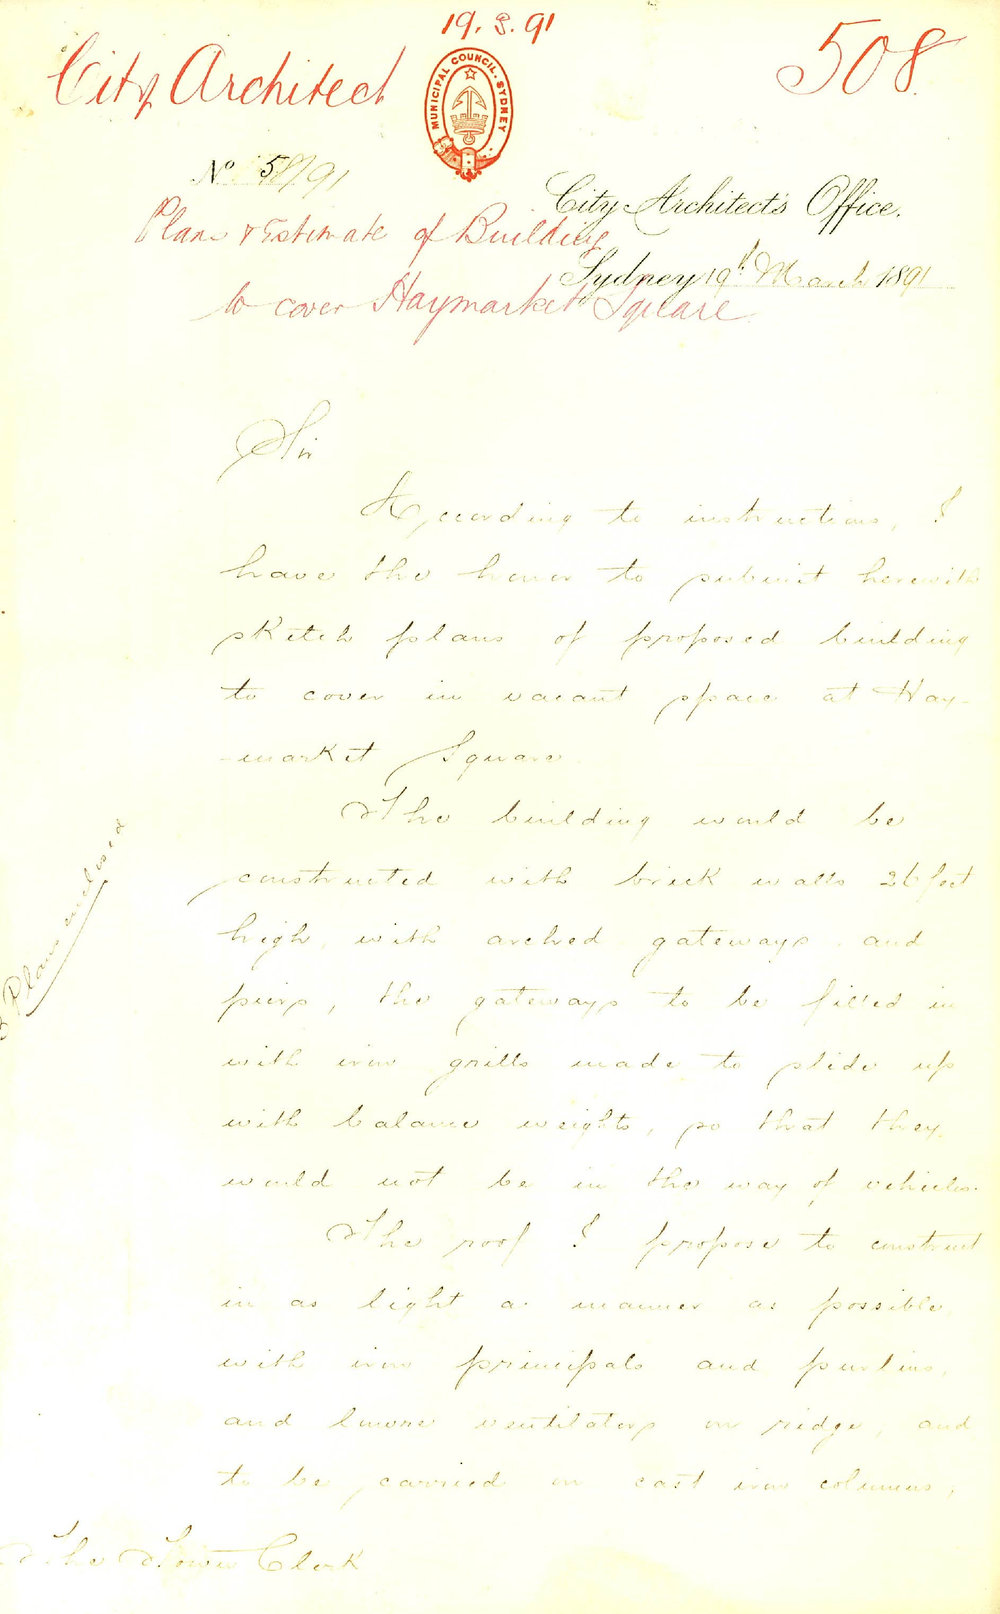 19.3.91
City Architect
508
MUNICIPAL COUNCIL · SYDNEY
No 58/91
City Architect's Office.
Plans & Estimate of Building
Sydney 19th March 1891
to cover Haymarket Square
Sir
According to instructions, I
have the honor to submit herewith
sketch plans of proposed building
to cover in vacant space at Hay-
-market Square.
The building would be
constructed with brick walls 26 feet
high with arched gateways and
piers, the gateways to be filled in
with iron grills made to slide up
with balance weights, so that they
would not be in the way of vehicles.
The roof I propose to construct
in as light a manner as possible
with iron principals and purlins,
and louvre ventilators on ridge, and
to be carried on cast iron columns,
The Town Clerk
3 Plans enclosed